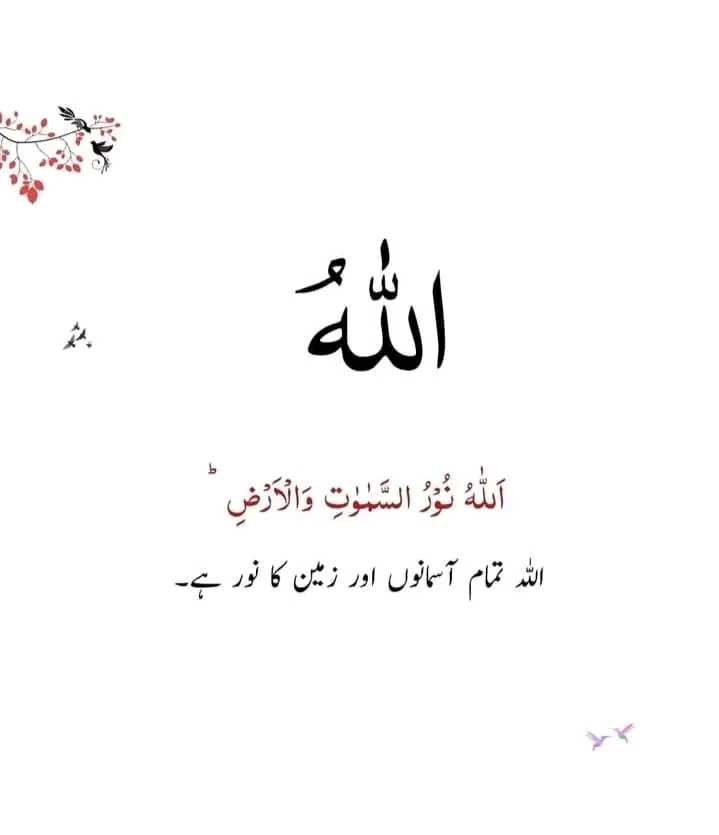 اللّٰهُ
اَللّٰهُ نُوْرُ السَّمٰوٰتِ وَالْاَرْضِ ؕ
اللہ تمام آسمانوں اور زمین کا نور ہے۔